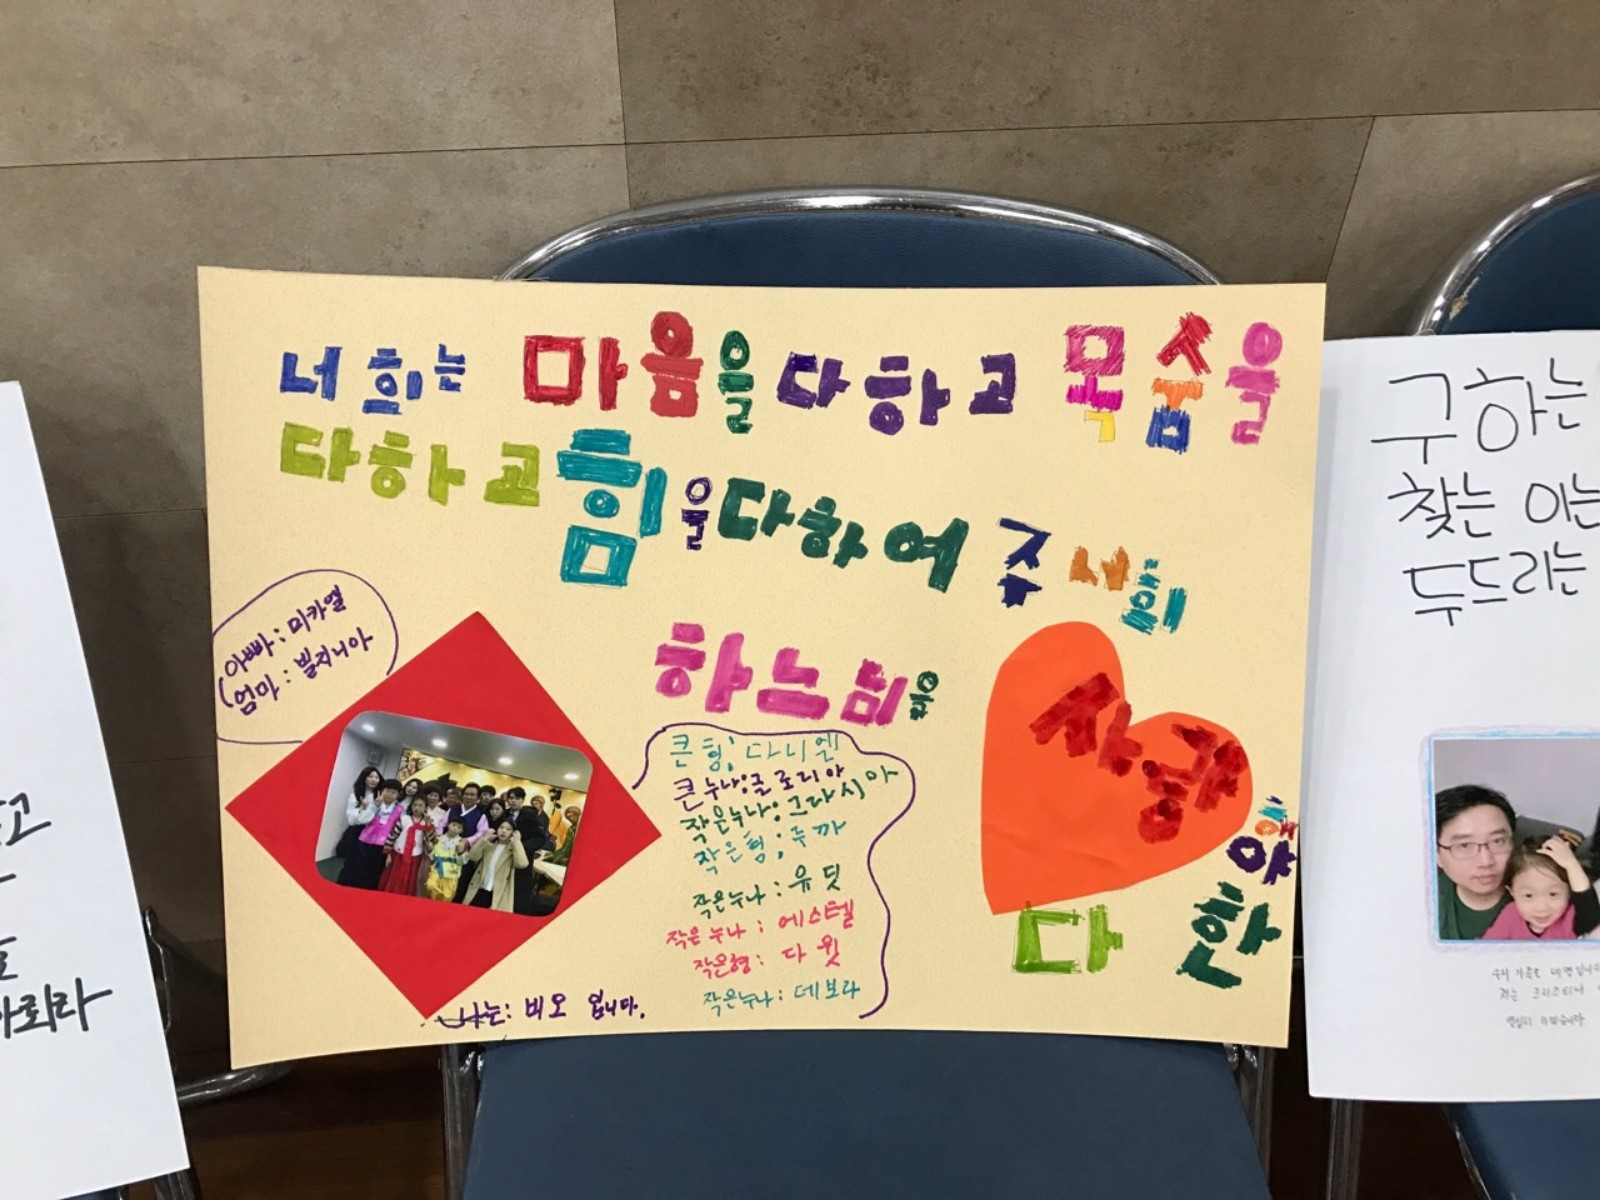 너희는 마음을 다하고 목숨을
다하고 힘을 다하여 주 너희
하느님을
사랑
해야
한
다
아빠: 미카엘
엄마: 빌지니아
큰형: 다니엘
큰누나: 글로리아
작은누나: 그라시아
작은형: 루까
작은누나: 유딧
작은누나: 에스텔
작은형: 다윗
작은누나: 데보라
나는: 비오 입니다.
구하는
찾는 이는
두드리는
고
아뢰라